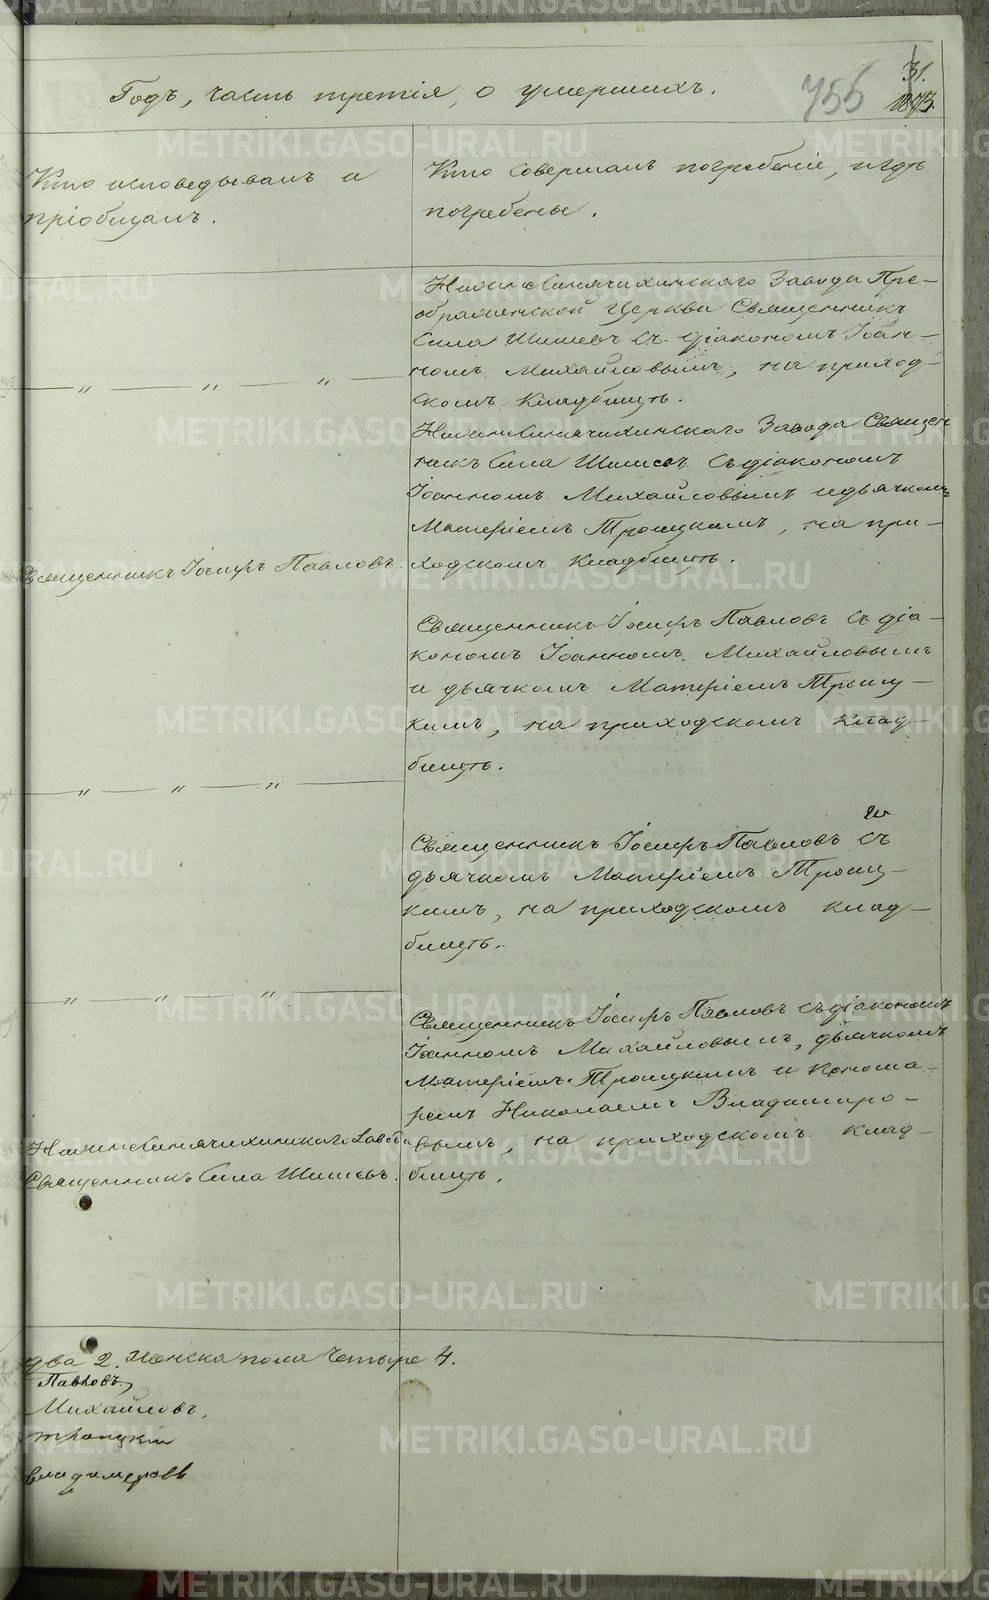 Годъ, часть третія, о умершихъ.
755
31.
1873.
Кто исповедывалъ и
пріобщалъ.
Кто совершалъ погребеніе, и гдѣ
погребены.
Нижнесинячихинскаго Завода Пре-
ображенской Церкви Священникъ
Сила Шишевъ съ діакономъ Іоан-
номъ Михайловымъ, на приход-
скомъ кладбищѣ.
Нижнесинячихинскаго Завода Священ
никъ Сила Шишевъ съ діакономъ
Іоанномъ Михайловымъ и дьячкомъ
Матѳіемъ Троицкимъ, на при-
Священникъ Іосифъ Павловъ.
ходскомъ кладбищѣ.
Священникъ Іосифъ Павловъ съ діа-
кономъ Іоанномъ Михайловымъ
и дьячкомъ Матѳіемъ Троиц-
кимъ, на приходскомъ клад-
бищѣ.
Священникъ Іосифъ Павловъ съ
дьячкомъ Матѳіемъ Троиц-
кимъ, на приходскомъ клад-
бищѣ.
Священникъ Іосифъ Павловъ съ діакономъ
Іоанномъ Михайловымъ, дьячкомъ
Матѳіемъ Троицкимъ и понома-
ремъ Николаемъ Владиміро-
Нижнесинячихинскаго Завода
вымъ, на приходскомъ клад-
Священникъ Сила Шишевъ.
бищѣ.
два 2. Женска пола Четыре 4.
Павловъ,
Михайловъ,
Троицкій
Владимеровъ
METRIKI.GASO-URAL.RU